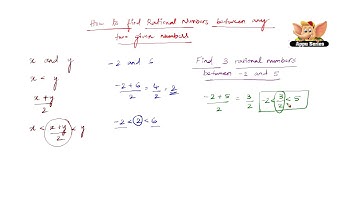 How to find Rational Numbers between any
two given numbers
x and y
x < y
x+y
2
x < x+y/2 < y
-2 and 6
-2+6/2 = 4/2 = 2
-2 < 2 < 6
Find 3 rational numbers
between -2 and 5
-2+5/2 = 3/2 -2 < 3/2 < 5
Appu Series